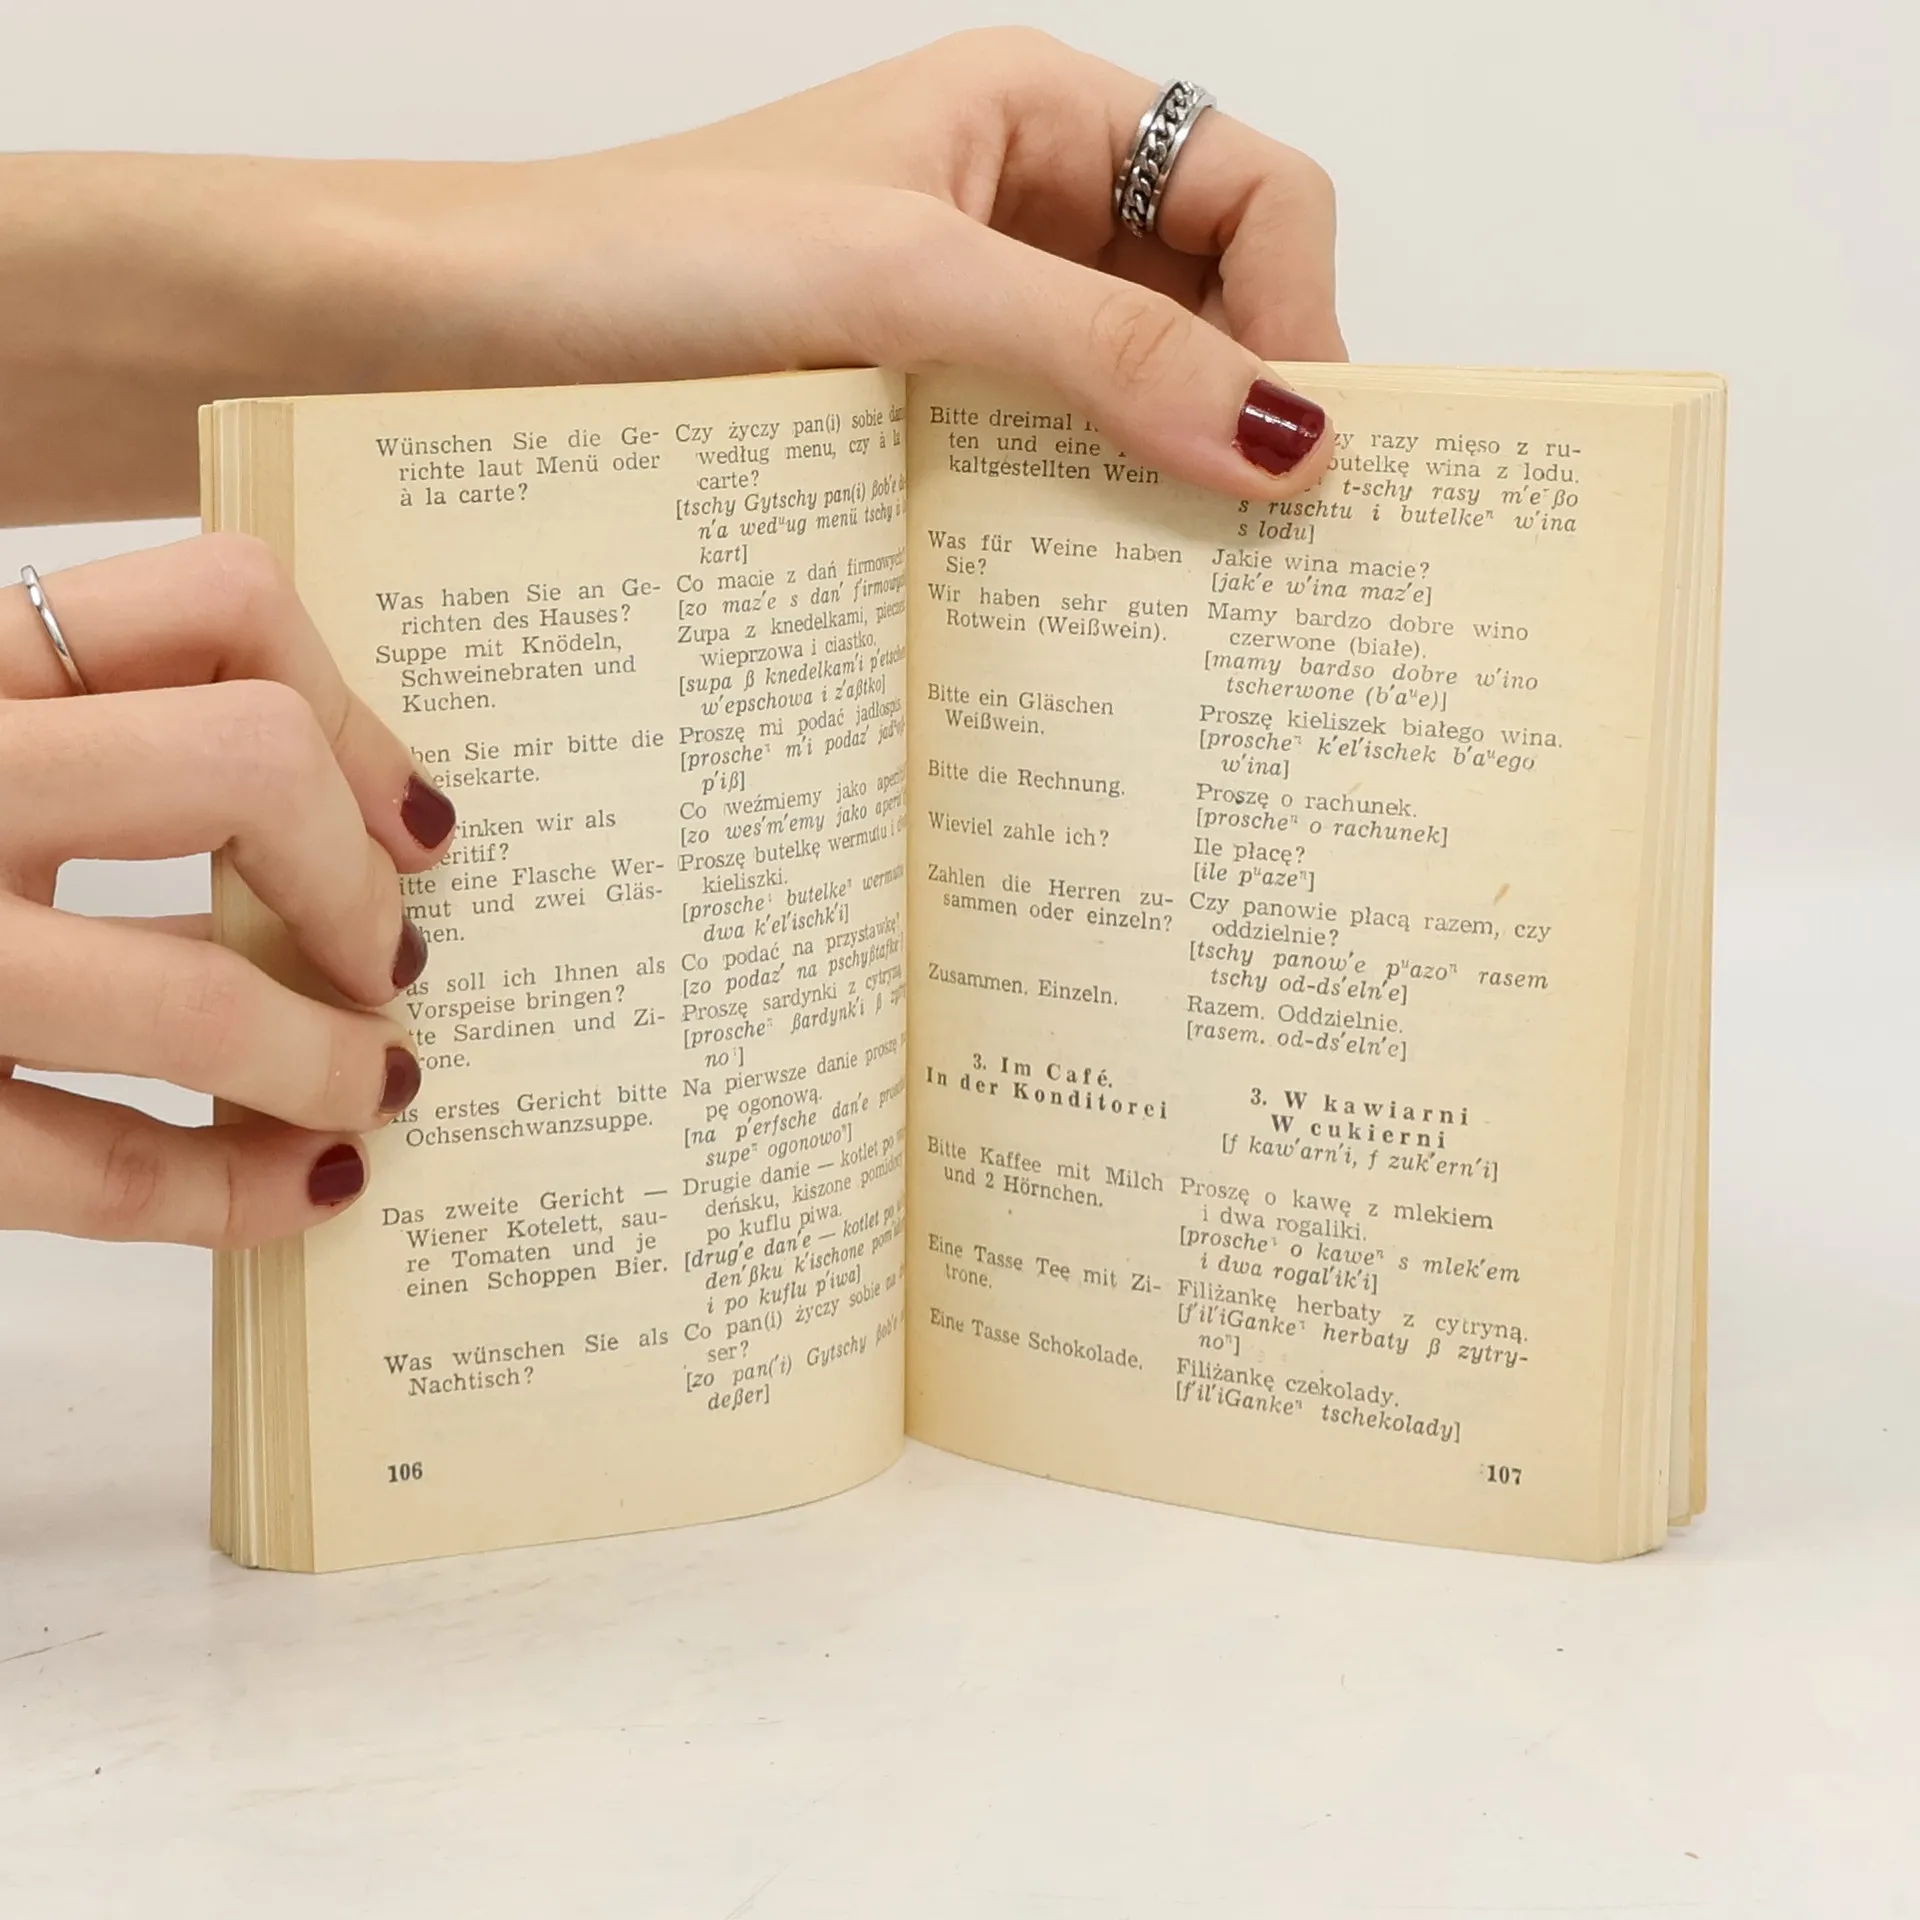 Wünschen Sie die Ge-
richte laut Menü oder
à la carte?
Was haben Sie an Ge-
richten des Hauses?
Suppe mit Knödeln,
Schweinebraten und
Kuchen.
Sie mir bitte die
wir als
eine Flasche Wer-
mut und zwei Gläs-
soll ich Ihnen als
Vorspeise bringen?
Sardinen und Zi-
erstes Gericht bitte
Ochsenschwanzsuppe.
Das zweite Gericht —
Wiener Kotelett, sau-
re Tomaten und je
einen Schoppen Bier.
Was wünschen Sie als
Nachtisch?
Czy życzy pan(i) sobie
według menu, czy à la
carte?
[tschy Gytschy pan(i) ßob'e
n'a wedᵘug menü tschy à
kart]
Co macie z dań firmowych?
[zo maz'e s dan' f'irmowych
Zupa z knedelkami,
wieprzowa i ciastko.
[supa ß knedelkam'i
w'epschowa i z'aßtko]
Proszę mi podać jadłospis.
[proscheⁿ m'i podaz'
p'iß]
Co weźmiemy jako
[zo wes'm'emy jako
Proszę butelkę wermutu i
kieliszki.
[proscheⁿ butelkeⁿ
dwa k'el'ischk'i]
Co podać na przystawkę?
[zo podaz' na
Proszę sardynki z cytryną.
[proscheⁿ ßardynk'i ß
noⁿ]
Na pierwsze danie proszę
pę ogonową.
[na p'erfsche dan'e
supeⁿ ogonowoⁿ]
Drugie danie — kotlet po
deńsku, kiszone
po kuflu piwa.
[drug'e dan'e — kotlet po
den'ßku k'ischone
i po kuflu p'iwa]
Co pan(i) życzy sobie na
ser?
[zo pan('i) Gytschy ßob'e
deßer]
106
Bitte dreimal
ten und eine
kaltgestellten Wein
Was für Weine haben
Sie?
Wir haben sehr guten
Rotwein (Weißwein).
Bitte ein Gläschen
Weißwein.
Bitte die Rechnung.
Wieviel zahle ich?
Zahlen die Herren zu-
sammen oder einzeln?
Zusammen. Einzeln.
3. Im Café.
In der Konditorei
Bitte Kaffee mit Milch
und 2 Hörnchen.
Eine Tasse Tee mit Zi-
trone.
Eine Tasse Schokolade.
razy mięso z ru-
butelkę wina z lodu.
t-schy rasy m'eⁿßo
s ruschtu i butelkeⁿ w'ina
s lodu]
Jakie wina macie?
[jak'e w'ina maz'e]
Mamy bardzo dobre wino
czerwone (białe).
[mamy bardso dobre w'ino
tscherwone (b'aᵘe)]
Proszę kieliszek białego wina.
[proscheⁿ k'el'ischek b'aᵘego
w'ina]
Proszę o rachunek.
[proscheⁿ o rachunek]
Ile płacę?
[ile pᵘazeⁿ]
Czy panowie płacą razem, czy
oddzielnie?
[tschy panow'e pᵘazoⁿ rasem
tschy od-ds'eln'e]
Razem. Oddzielnie.
[rasem. od-ds'eln'e]
3. W kawiarni
W cukierni
[f kaw'arn'i, f zuk'ern'i]
Proszę o kawę z mlekiem
i dwa rogaliki.
[proscheⁿ o kaweⁿ s mlek'em
i dwa rogal'ik'i]
Filiżankę herbaty z cytryną.
[f'il'iGankeⁿ herbaty ß zytry-
noⁿ]
Filiżankę czekolady.
[f'il'iGankeⁿ tschekolady]
107